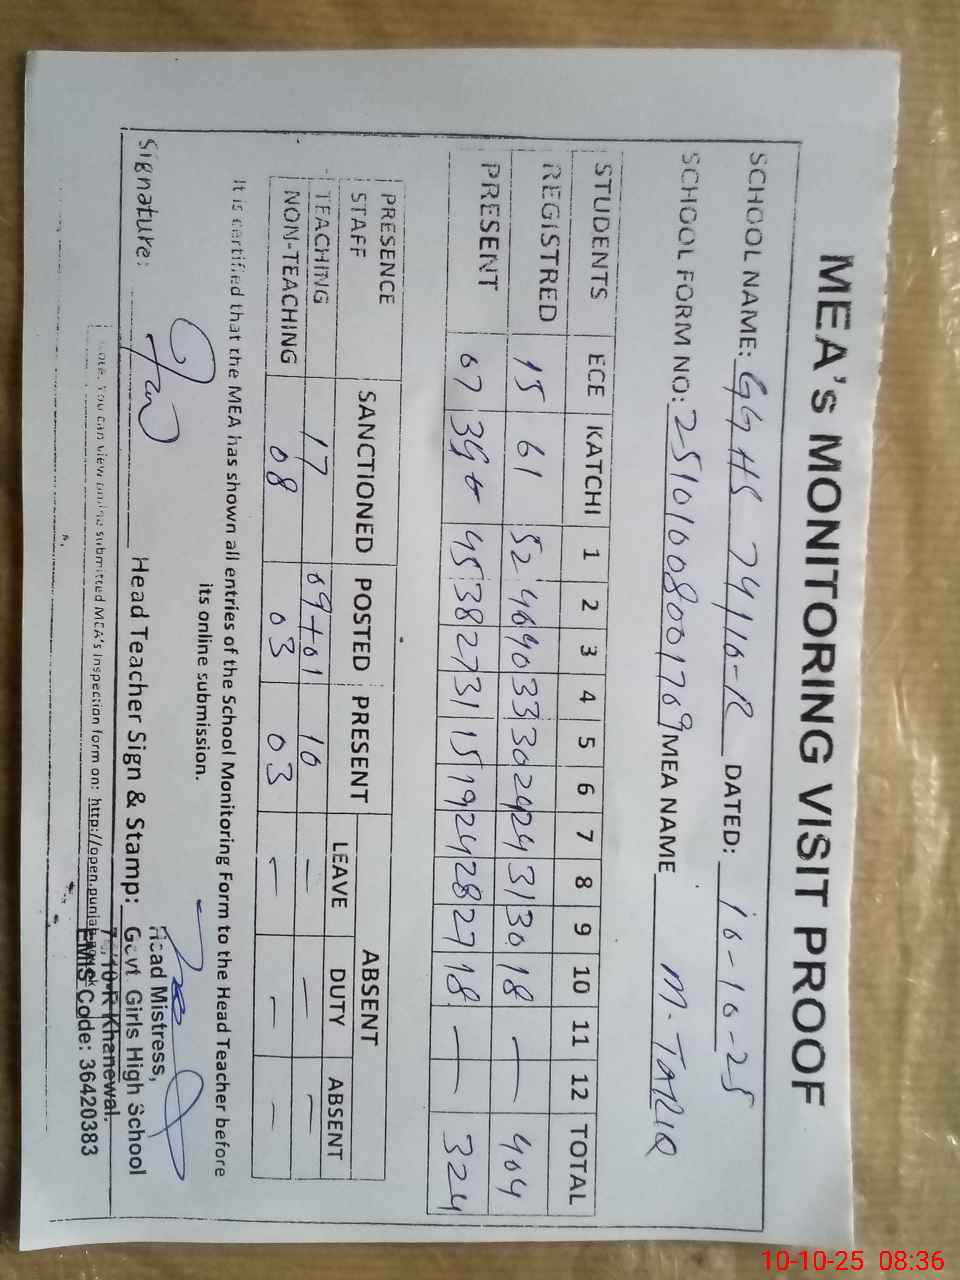 MEA's MONITORING VISIT PROOF
SCHOOL NAME: GGHS 74/10-R DATED: 10-10-25
SCHOOL FORM NO: 25101008001769 MEA NAME M. TARIQ
STUDENTS ECE KATCHI 1 2 3 4 5 6 7 8 9 10 11 12 TOTAL
REGISTRED 15 61 52 46 40 33 30 24 24 31 30 18 — 404
PRESENT 07 45 38 27 31 15 19 24 28 27 18 — — 324
PRESENCE STAFF SANCTIONED POSTED PRESENT ABSENT
LEAVE DUTY ABSENT
TEACHING 17 09+01 10 — — —
NON-TEACHING 08 03 03 — — —
It is certified that the MEA has shown all entries of the School Monitoring Form to the Head Teacher before
its online submission.
Signature: Head Teacher Sign & Stamp:
Head Mistress,
Govt. Girls High School
74/10-R Khanewal.
EMIS Code: 36420383
Note: You can view online submitted MEA's Inspection form on: http://open.punjab
10-10-25 08:36